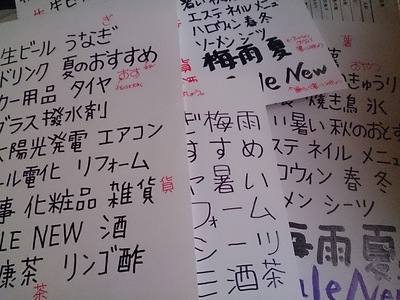 生ビール うなぎ
ドリンク 夏のおすすめ
カー用品 タイヤ
グラス 撥水剤
太陽光発電 エアコン
ール電化 リフォーム
事 化粧品 雑貨
LE NEW 酒
康茶 リンゴ酢
ぎ
おす
貨
茶
エステ ネイル メニュ
ハロウィン 春 冬
ソーメン シーツ
梅雨 夏
le New
梅雨
すめ
暑い
フォーム
シーツ
酒茶
きゅうり
焼き鳥 氷
い 暑い 秋のおとず
ステ ネイル メニュ
ロウィン 春 冬
メン シーツ
梅雨 夏
le New
暑
おやつ